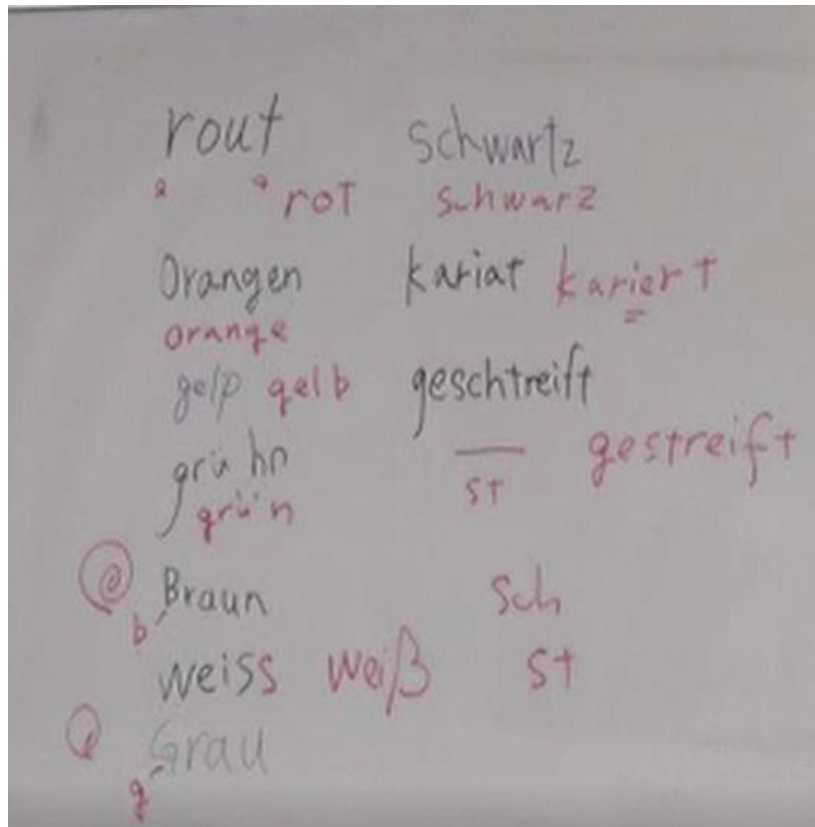 rout schwartz
rot schwarz
Orangen kariat kariert
orange
gelp gelb geschtreift
grühn st gestreift
grün
Braun sch
b
weiss weiß st
Grau
g